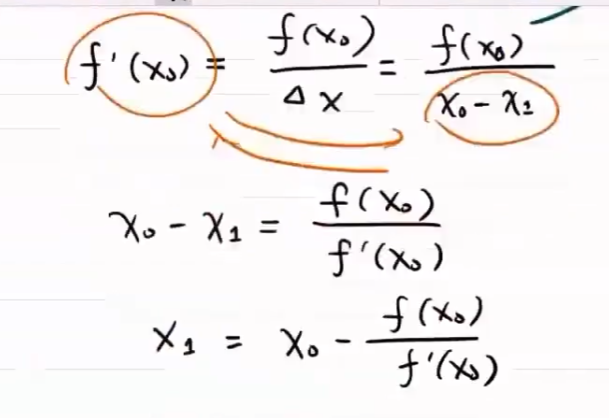 f'(x₀) = f(x₀)/Δx = f(x₀)/(x₀ - x₁)
x₀ - x₁ = f(x₀)/f'(x₀)
x₁ = x₀ - f(x₀)/f'(x₀)